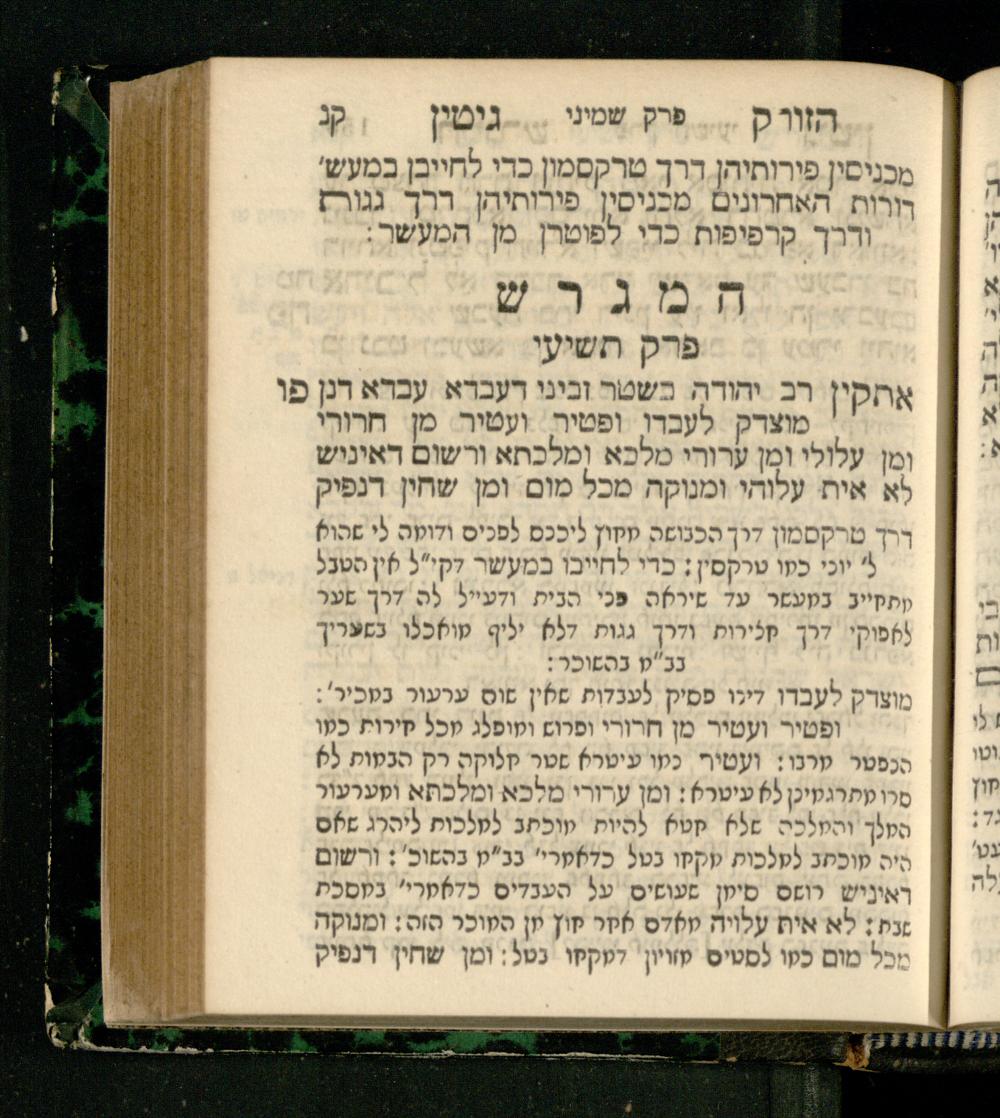 הזורק פרק שמיני גיטין קנ
מכניסין פירותיהן דרך טרקסמון כדי לחייבן במעש׳
דורות האחרונים מכניסין פירותיהן דרך גגות
ודרך קרפיפות כדי לפוטרן מן המעשר:
המגרש
פרק תשיעי
אתקין רב יהודה בשטר זביני דעבדא עבדא דנן פו
מוצדק לעבדו ופטיר ועטיר מן חרורי
ומן עלולי ומן ערורי מלכא ומלכתא ורשום דאיניש
לא אית עלוהי ומנוקה מכל מום ומן שחין דנפיק
דרך טרקסמון דרך הכבושה מחוץ ליכנס לפנים ודומה לי שהוא
ל׳ יוני כמו טרקסין: כדי לחייבו במעשר דקי״ל אין הטבל
מתחייב במעשר עד שיראה פני הבית ודעייל לה דרך שער
לאפוקי דרך חצירות ודרך גגות דלא יליף מואכלו בשעריך
בב״מ בהשוכר:
מוצדק לעבדו דינו פסיק לעבדות שאין שום ערעור במכיר׳:
ופטיר ועטיר מן חרורי ופרוש ומופלג מכל חירות כמו
הנפטר מרבו: ועטיר כמו עיטרא שטר חלוקה רק הבמות לא
סרו מתרגמינן לא עיטרא: ומן ערורי מלכא ומלכתא ומערעור
המלך והמלכה שלא חטא להיות מוכתב למלכות ליהרג שאם
היה מוכתב למלכות מקחו בטל כדאמרי׳ בב״מ בהשוכ׳: ורשום
דאיניש רושם סימן שעושים על העבדים כדאמרי׳ במסכת
שבת: לא אית עלויה מאדם אחר חוץ מן המוכר הזה: ומנוקה
מכל מום כמו לסטים מזויין דמקחו בטל: ומן שחין דנפיק